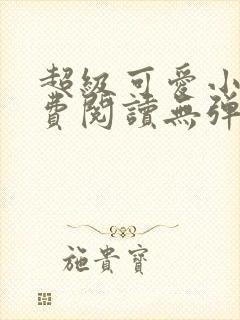 超級可愛小
費閱讀無彈
施貴寶